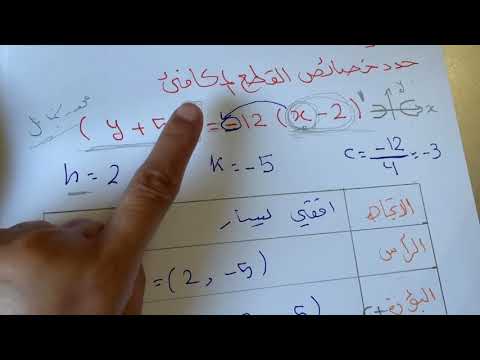 حدد خصائص القطع المكافئ
( y + 5 = -12 (x - 2)
y
x
h = 2 K = -5 C = -12/4 = -3
الاتجاه افقي لليسار
الرأس = (2, -5)
البؤرة